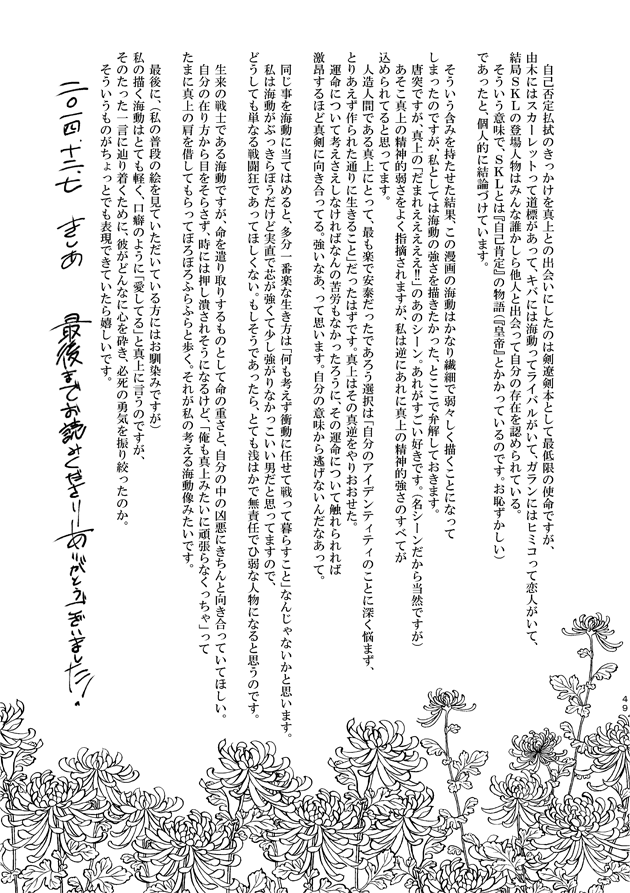 自己否定払拭のきっかけを真上との出会いにしたのは剣遼剣本として最低限の使命ですが、
由木にはスカーレットって道標があって、キバには海動ってライバルがいて、ガランにはヒミコって恋人がいて、
結局ＳＫＬの登場人物はみんな誰かしら他人と出会って自分の存在を認められている。
そういう意味で、ＳＫＬとは『自己肯定』の物語（『皇帝』とかかっているのです。お恥ずかしい）
であったと、個人的に結論づけています。
そういう含みを持たせた結果、この漫画の海動はかなり繊細で弱々しく描くことになって
しまったのですが、私としては海動の強さを描きたかった、とここで弁解しておきます。
唐突ですが、真上の「だまれえええええ!!」のあのシーン。あれがすごい好きです。（名シーンだから当然ですが）
あそこ真上の精神的弱さをよく指摘されますが、私は逆にあれに真上の精神的強さのすべてが
込められてると思ってます。
人造人間である真上にとって、最も楽で安泰だったであろう選択は「自分のアイデンティティのことに深く悩まず、
とりあえず作られた通りに生きること」だったはずです。真上はその真逆をやりおおせた。
運命について考えさえしなければなんの苦労もなかったろうに、その運命について触れられれば
激昂するほど真剣に向き合ってる。強いなあ、って思います。自分の意味から逃げないんだなあって。
同じ事を海動に当てはめると、多分一番楽な生き方は「何も考えず衝動に任せて戦って暮らすこと」なんじゃないかと思います。
私は海動がぶっきらぼうだけど実直で芯が強くて少し強がりなかっこいい男だと思ってますので、
どうしても単なる戦闘狂であってほしくない。もしそうであったら、とても浅はかで無責任でひ弱な人物になると思うのです。
生来の戦士である海動ですが、命を遣り取りするものとして命の重さと、自分の中の凶悪にきちんと向き合っていてほしい。
自分の在り方から目をそらさず、時には押し潰されそうになるけど、「俺も真上みたいに頑張らなくっちゃ」って
たまに真上の肩を借してもらってぼろぼろふらふらと歩く。それが私の考える海動像みたいです。
最後に、（私の普段の絵を見ていただいている方にはお馴染みですが）
私の描く海動はとても軽く、口癖のように「愛してる」と真上に言うのですが、
そのたった一言に辿り着くために、彼がどんなに心を砕き、必死の勇気を振り絞ったのか。
そういうものがちょっとでも表現できていたら嬉しいです。
二〇一四、十二、七　きしめ　最後までお読みくださりありがとうございました！
49